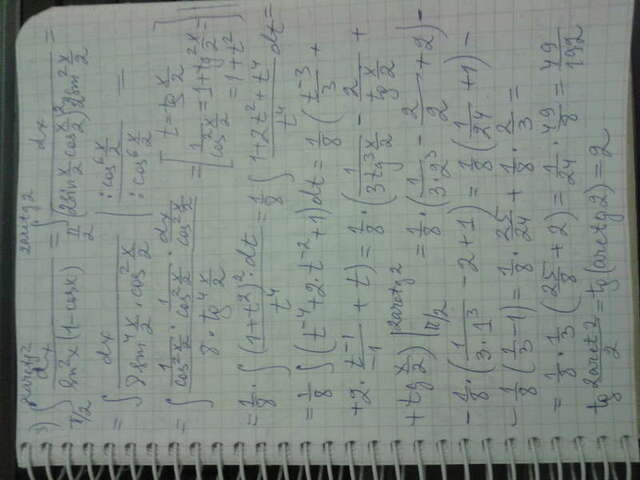 3) ∫_{π/2}^{2arctg2} dx / (sin²x(1-cosx)) = ∫_{π/2}^{2arctg2} dx / ((2sin x/2 · cos x/2)² 2sin² x/2) =
= ∫ dx / (8sin⁴ x/2 · cos² x/2) | :cos⁶ x/2 / :cos⁶ x/2 | =
= ∫ (1/cos² x/2 · 1/cos² x/2 · dx/cos² x/2) / (8 · tg⁴ x/2) = [t = tg x/2; 1/cos² x/2 = 1+tg² x/2 = 1+t²] =
= 1/8 · ∫ (1+t²)² · dt / t⁴ = 1/8 ∫ (1+2t²+t⁴)/t⁴ dt =
= 1/8 ∫ (t⁻⁴ + 2·t⁻² + 1) dt = 1/8 (t⁻³/3 +
+ 2 · t⁻¹/-1 + t) = 1/8 · (1/(3tg³ x/2) - 2/(tg x/2) +
+ tg x/2) |_{π/2}^{2arctg2} = 1/8 · (1/(3·2³) - 2/2 + 2) -
- 1/8 · (1/(3·1³) - 2 + 1) = 1/8 (1/24 + 1) -
- 1/8 (1/3 - 1) = 1/8 · 25/24 + 1/8 · 2/3 =
= 1/8 · 1/3 (25/8 + 2) = 1/24 · 49/8 = 49/192
tg 2arctg2/2 = tg(arctg2) = 2